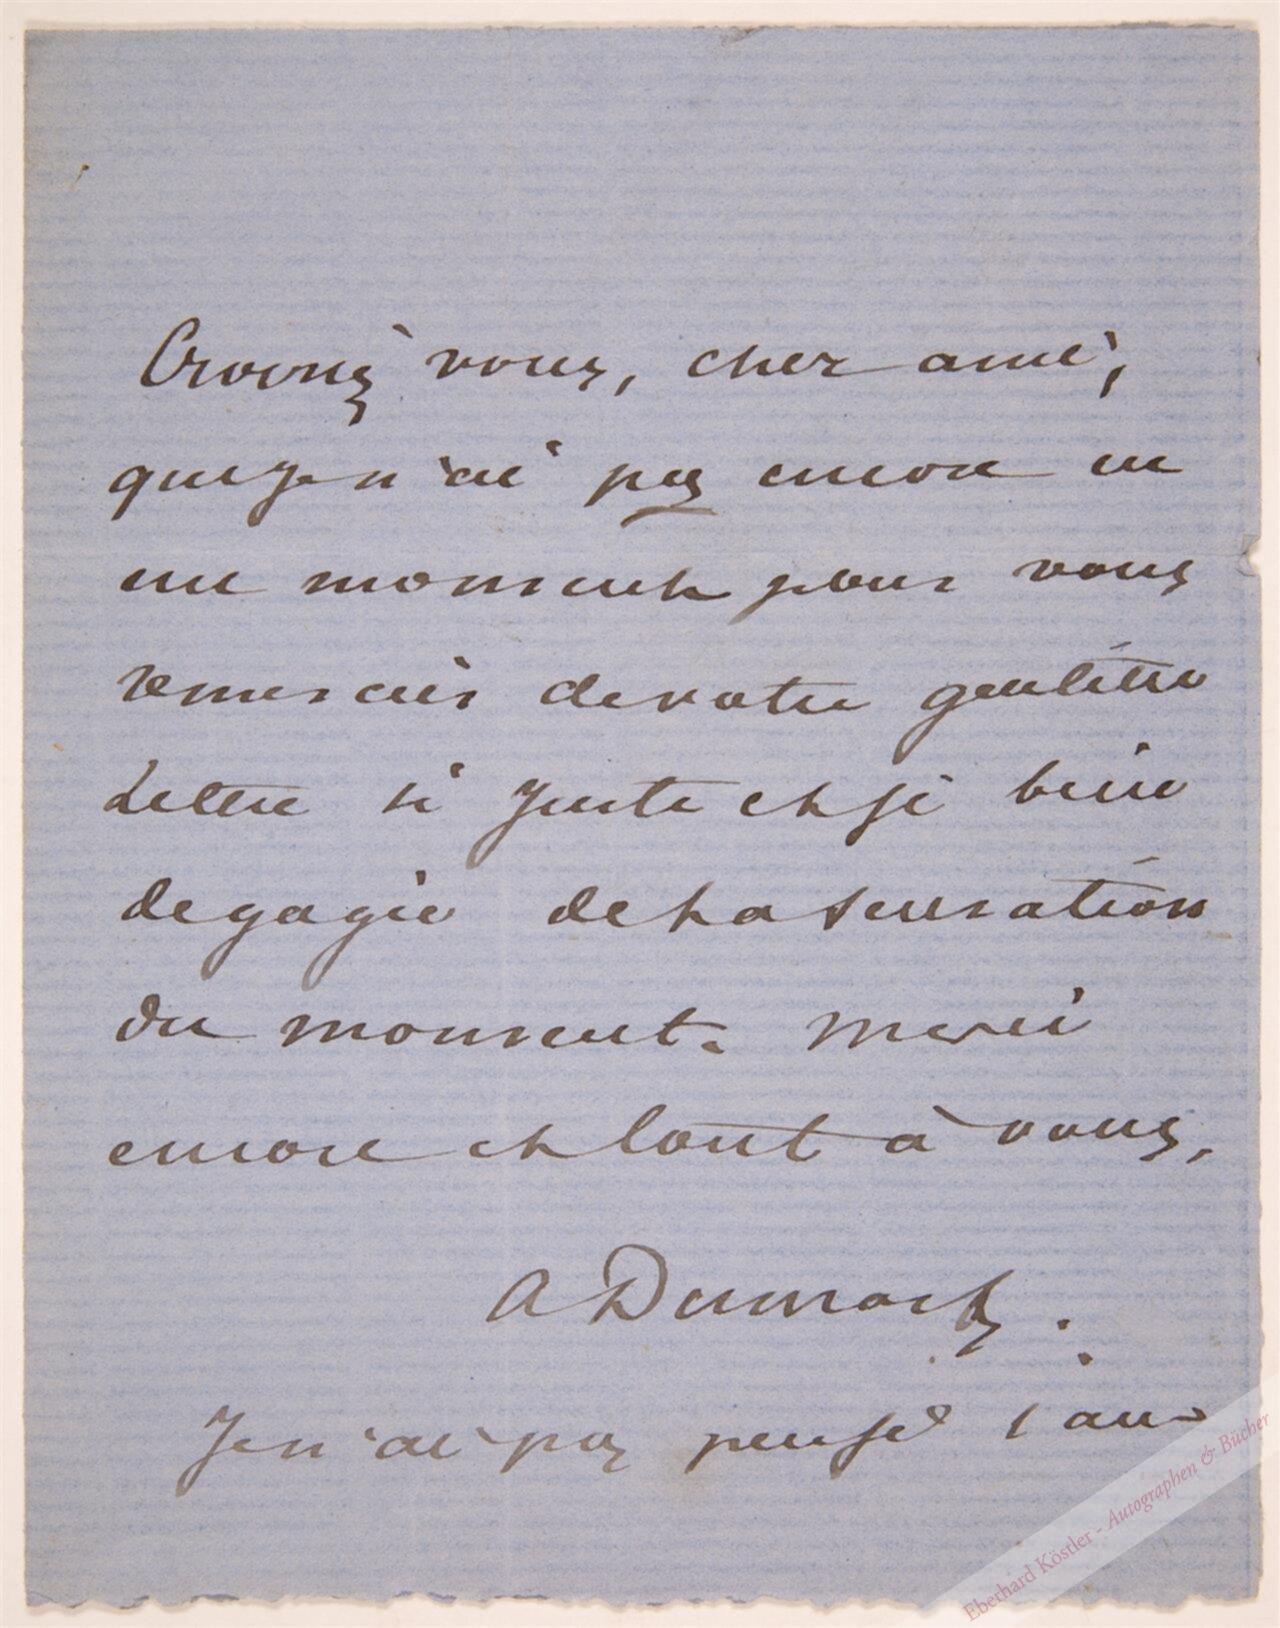 Croiriez vous, cher ami,
que je n'ai pas encore eu
un moment pour vous
remercier de votre gentille
Lettre si juste et si bien
degagée de la sensation
du moment. Merci
encore et tout à vous,
A Dumas f.
Je n'ai pas pensé
Eberhard Köstler - Autographen & Bücher